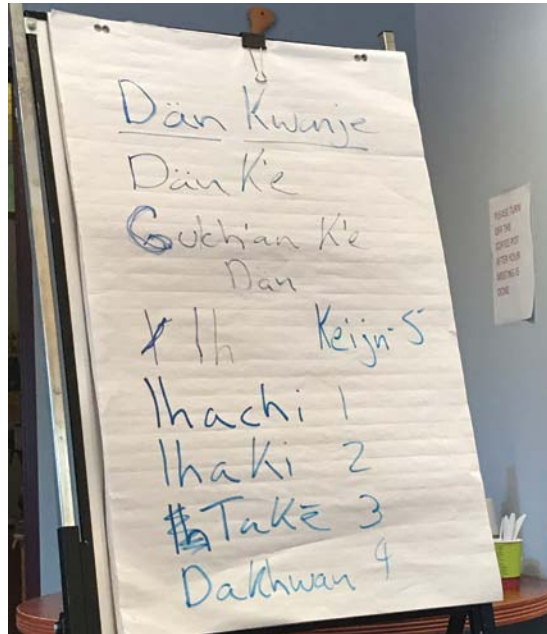 Dän Kwanje
Dän K'e
Gukh'an K'e
Dän
lh Keijn-5
lhachi 1
lhaki 2
Takē 3
Dakhwan 4
PLEASE TURN
OFF THE
COFFEE POT
AFTER YOUR
MEETING IS
DONE